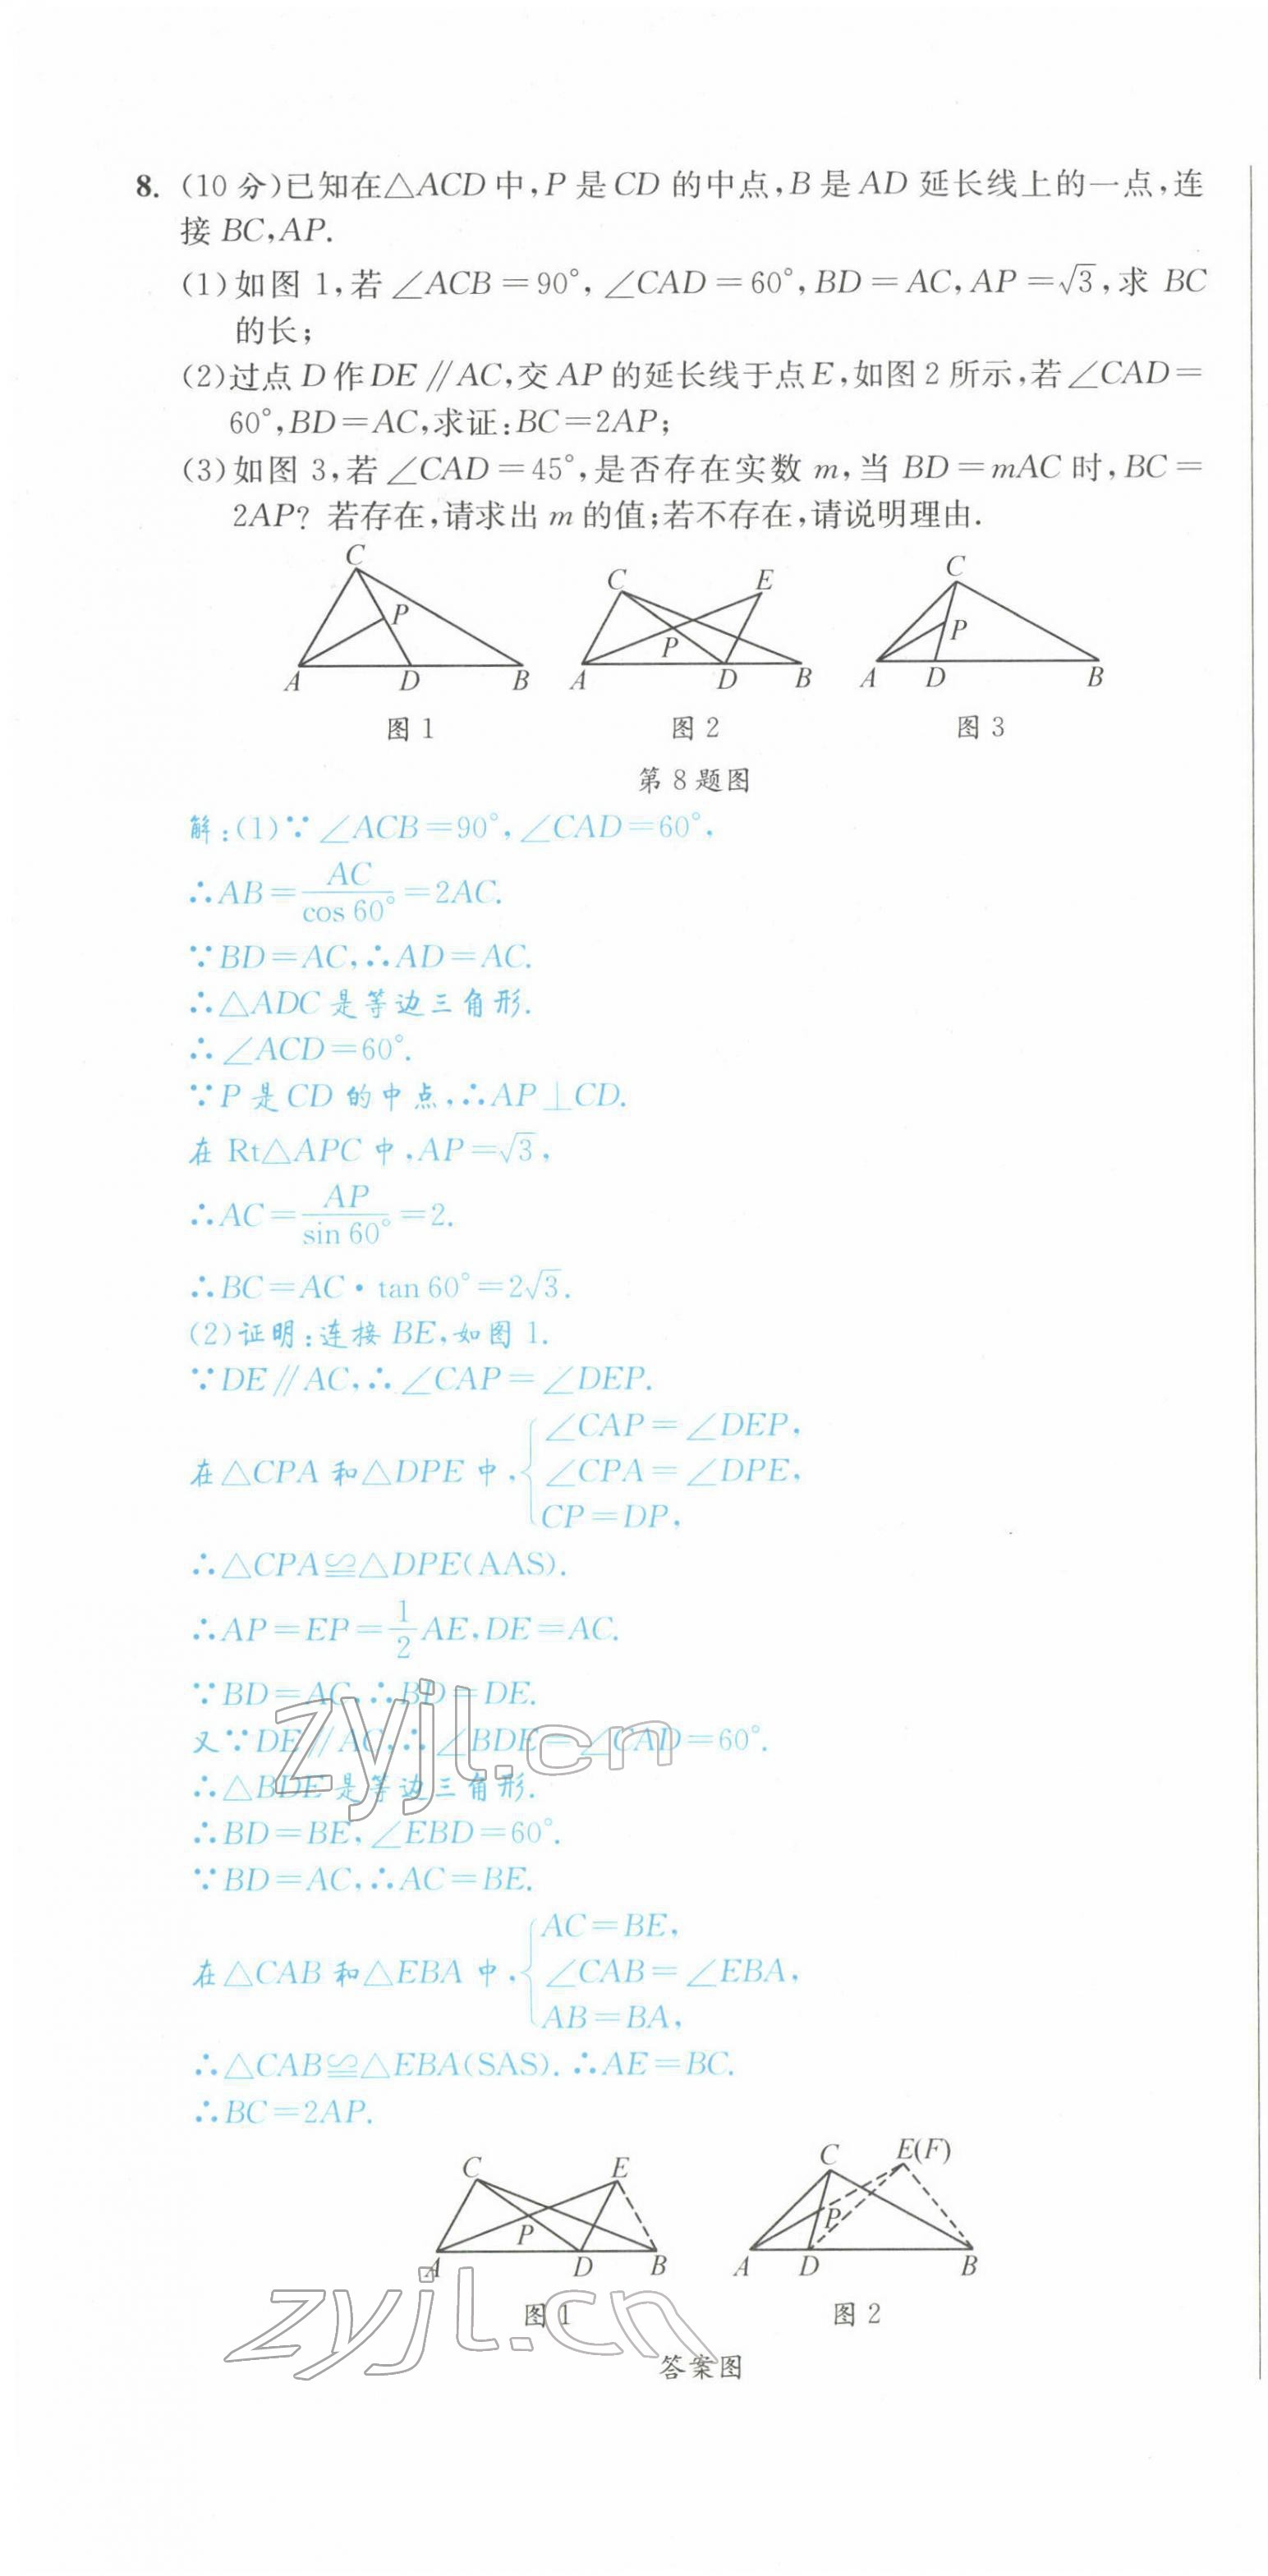 8. (10 分)已知在△ACD 中,P 是 CD 的中点,B 是 AD 延长线上的一点,连
接 BC,AP.
(1)如图 1,若∠ACB=90°,∠CAD=60°,BD=AC,AP=√3,求 BC
的长;
(2)过点 D 作 DE∥AC,交 AP 的延长线于点 E,如图 2 所示,若∠CAD=
60°,BD=AC,求证:BC=2AP;
(3)如图 3,若∠CAD=45°,是否存在实数 m,当 BD=mAC 时,BC=
2AP? 若存在,请求出 m 的值;若不存在,请说明理由.
C P A D B
C E P A D B
C P A D B
图 1 图 2 图 3
第 8 题图
解:(1)∵∠ACB=90°,∠CAD=60°,
∴AB=AC/cos 60°=2AC.
∵BD=AC,∴AD=AC.
∴△ADC 是等边三角形.
∴∠ACD=60°.
∵P 是 CD 的中点,∴AP⊥CD.
在 Rt△APC 中,AP=√3,
∴AC=AP/sin 60°=2.
∴BC=AC·tan 60°=2√3.
(2)证明:连接 BE,如图 1.
∵DE∥AC,∴∠CAP=∠DEP.
在△CPA 和△DPE 中,{∠CAP=∠DEP,
∠CPA=∠DPE,
CP=DP,
∴△CPA≌△DPE(AAS).
∴AP=EP=1/2 AE,DE=AC.
∵BD=AC,∴BD=DE.
又∵DE∥AC,∴∠BDE=∠CAD=60°.
∴△BDE 是等边三角形.
∴BD=BE,∠EBD=60°.
∵BD=AC,∴AC=BE.
在△CAB 和△EBA 中,{AC=BE,
∠CAB=∠EBA,
AB=BA,
∴△CAB≌△EBA(SAS).∴AE=BC.
∴BC=2AP.
C E P A D B
C E(F) P A D B
图 1 图 2
答案图
zyjl.cn
zyjl.cn